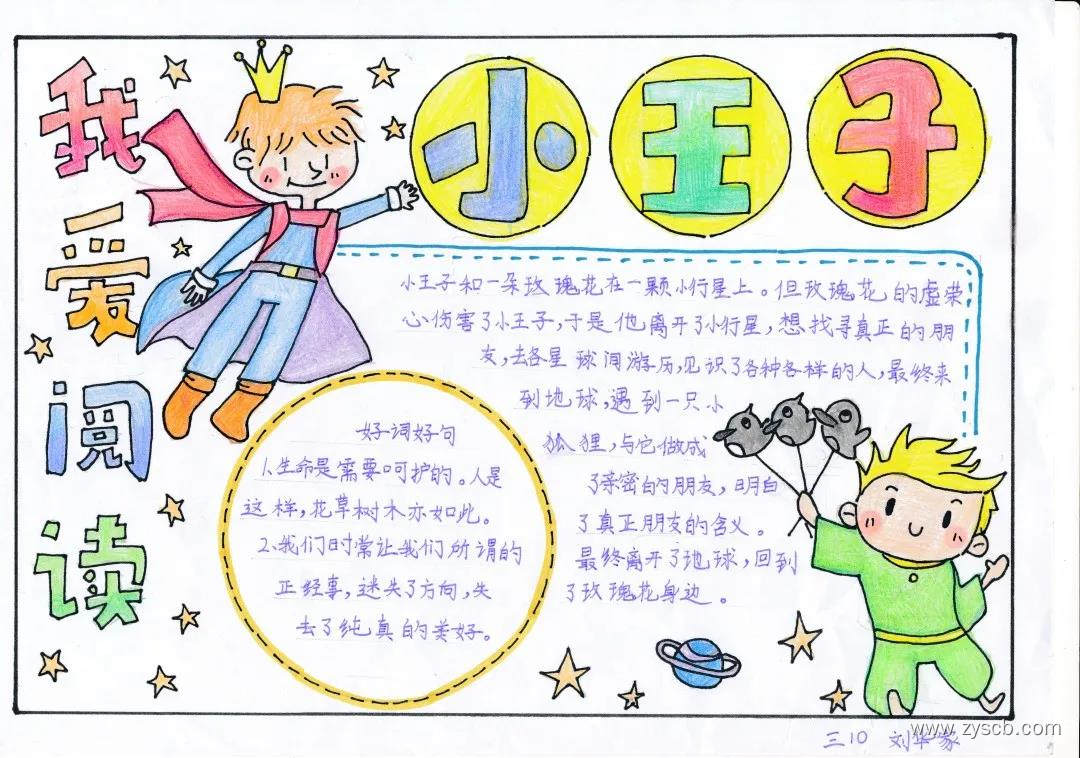 我爱阅读
小王子
小王子和一朵玫瑰花在一颗小行星上。但玫瑰花的虚荣
心伤害了小王子,于是他离开了小行星,想找寻真正的朋
友,去各星球间游历,见识了各种各样的人,最终来
到地球,遇到一只小
狐狸,与它做成
了亲密的朋友,明白
了真正朋友的含义。
最终离开了地球,回到
了玫瑰花身边。
好词好句
1.生命是需要呵护的。人是
这样,花草树木亦如此。
2.我们时常让我们所谓的
正经事,迷失了方向,失
去了纯真的美好。
三10 刘华家
www.zyscb.com